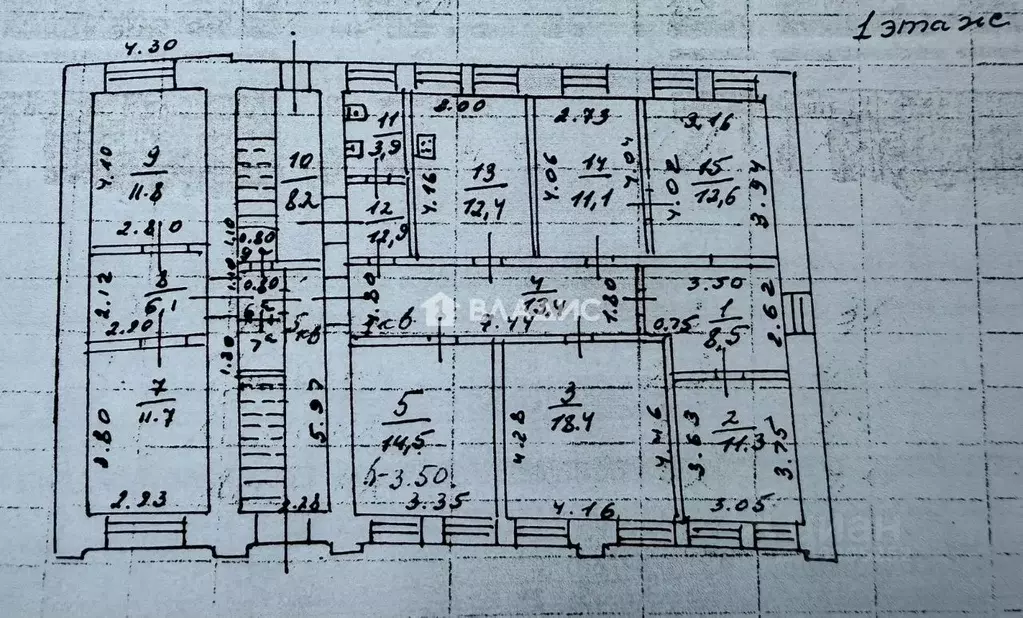 1 этаж
4.30
4.10
9
11.8
2.80
2.12
8
6.1
2.20
7
11.7
3.80
2.23
1.10
1.20
10
8.2
0.80
0.80
5.97
2.28
11
3,9
12
12,9
3.00
4.16
13
12,4
2.73
4.06
14
11,1
4.04
3,16
4.02
15
12,6
3.94
1.80
4
13,4
7.44
1.80
ВЛАДИС
3.50
1
8,5
0.75
2.62
5
14,5
h-3.50
3.35
4.28
3
18.4
4.46
4.16
3.63
2
11.3
3.75
3.05